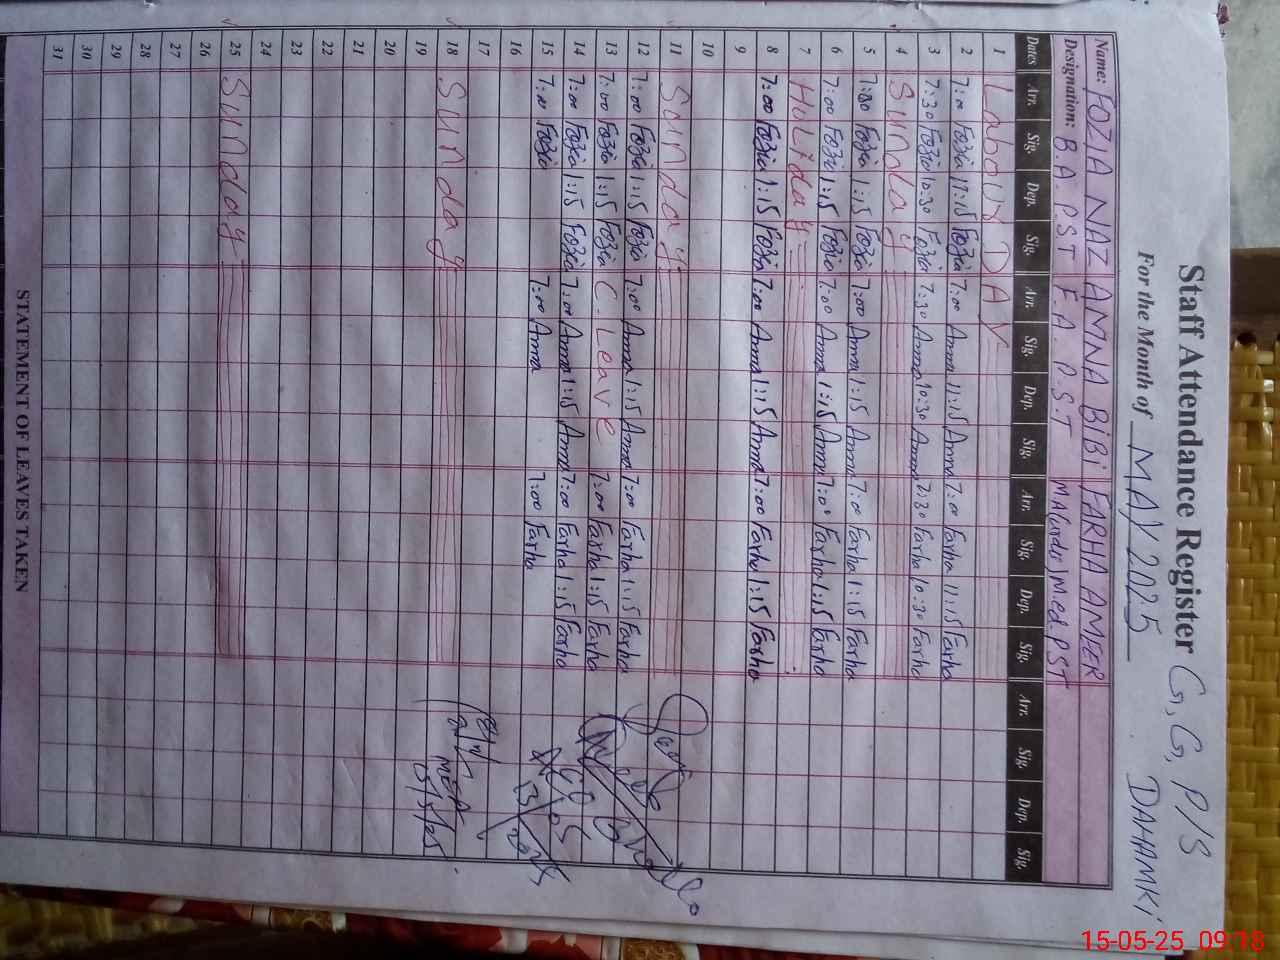 Staff Attendance Register G, G, P/S
For the Month of MAY 2025 DAHAMKI
Name: FOZIA NAZ AMNA BiBi FARHA AMEER
Designation: B.A. P.ST F.A. P.S.T MA(urdu) M.ed. PST
Dates Arr. Sig. Dep. Sig. Arr. Sig. Dep. Sig. Arr. Sig. Dep. Sig. Arr. Sig. Dep. Sig.
1 Labour DAY
2 7:00 Fozia 11:15 Fozia 7:00 Amna 11:15 Amna 7:00 Farha 11:15 Farha
3 7:30 Fozia 10:30 Fozia 7:30 Amna 10:30 Amna 7:30 Farha 10:30 Farha
4 Sunday
5 7:00 Fozia 1:15 Fozia 7:00 Amna 1:15 Amna 7:00 Farha 1:15 Farha
6 7:00 Fozia 1:15 Fozia 7:00 Amna 1:15 Amna 7:00 Farha 1:15 Farha
7 Holiday
8 7:00 Fozia 1:15 Fozia 7:00 Amna 1:15 Amna 7:00 Farha 1:15 Farha
9
10
11 Sunday
12 7:00 Fozia 1:15 Fozia 7:00 Amna 1:15 Amna 7:00 Farha 1:15 Farha
13 7:00 Fozia 1:15 Fozia C. Leave 7:00 Farha 1:15 Farha
14 7:00 Fozia 1:15 Fozia 7:00 Amna 1:15 Amna 7:00 Farha 1:15 Farha
15 7:00 Fozia 7:00 Amna 7:00 Farha
16
17
18 Sunday
19
20
21
22
23
24
25 Sunday
26
27
28
29
30
31
STATEMENT OF LEAVES TAKEN
15-05-25 09:18